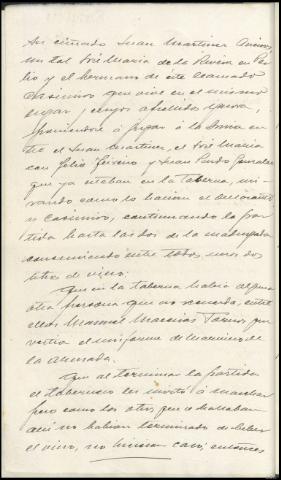 su cuñado Juan Martinez
un tal José Maria de la
y el hermano de éste llamado
Casimiro que vive en el mismo
lugar y cuyos apellidos ignora,
poniendose á jugar á la brisca en
tre el Juan Martinez, el José Maria
con Felix Piñeiro y Juan Pardo Gonzalez
que ya estaban en la taberna, mi
rando como lo hacian el declarante
y Casimiro, continuando la par
tida hasta las dos de la madrugada
consumiendo entre todos unos dos
litros de vino.
Que en la taberna habia alguna
otra persona que no recuerda, entre
ellos Manuel Maceiras que
vestia el uniforme de Marinero de
la Armada.
Que al terminar la partida
el tabernero les invitó á marchar
pero como los otros que se hallaban
alli no habian terminado de beber
el vino, no hicieron caso, entonces